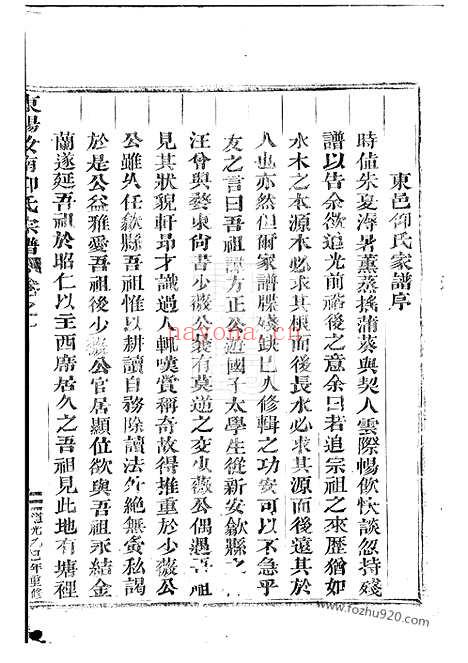 東邑仰氏家譜序
時值朱夏溽暑薰蒸搖蒲葵與契人雲際暢飲快談忽持殘
譜以告余欲追光前裕後之意余曰若追宗祖之來歷猶如
水木之本源木必求其根而後長水必求其源而後遠其於
人也亦然但爾家譜牒殘缺已久修輯之功安可以不急乎
友之言曰吾祖諱方正公遊國子太學生從新安歙縣之
汪曾與婺東尚書少薇公裴有莫逆之交少薇公偶遇吾祖
見其狀貌軒昂才識過人輒嘆賞稱奇故得推重於少薇公
公雖久任歙縣吾祖惟以耕讀自務除讀法外絕無夤私謁
於是公益雅愛吾祖後少薇公官居顯位欲與吾祖永結金
蘭遂延吾祖於昭仁以主西席居久之吾祖見此地有塘裡
東陽汝南仰氏宗譜 卷之一
道光乙巳年重修
nayona.cn
www.fozhu920.com